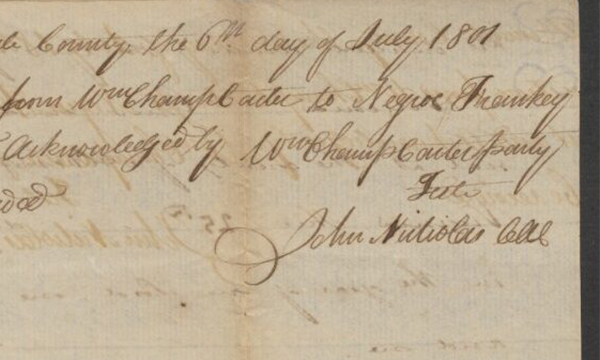 County the 6th day of July 1801
from Wm Champ Carter to Negroe Frankey
Acknowledged by Wm Champ Carter party
Teste
John Nicholas CAC